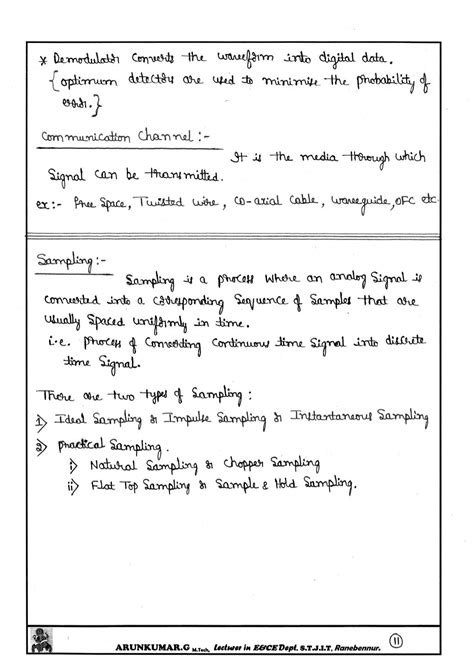 * Demodulator converts the waveform into digital data.
{optimum detectors are used to minimise the probability of
error.}
Communication Channel :-
It is the media through which
Signal can be transmitted.
ex:- Free Space, Twisted wire, co-axial cable, waveguide, OFC etc
Sampling :-
Sampling is a process where an analog Signal is
converted into a corresponding Sequence of Samples that are
usually Spaced uniformly in time.
i.e. process of converting continuous time Signal into discrete
time Signal.
There are two types of Sampling :
1) Ideal Sampling or Impulse Sampling or Instantaneous Sampling
2) practical Sampling.
i) Natural Sampling or Chopper Sampling
ii) Flat Top Sampling or Sample & Hold Sampling.
ARUNKUMAR.G M.Tech, Lecturer in E&CE Dept. S.T.J.I.T, Ranebennur.
11